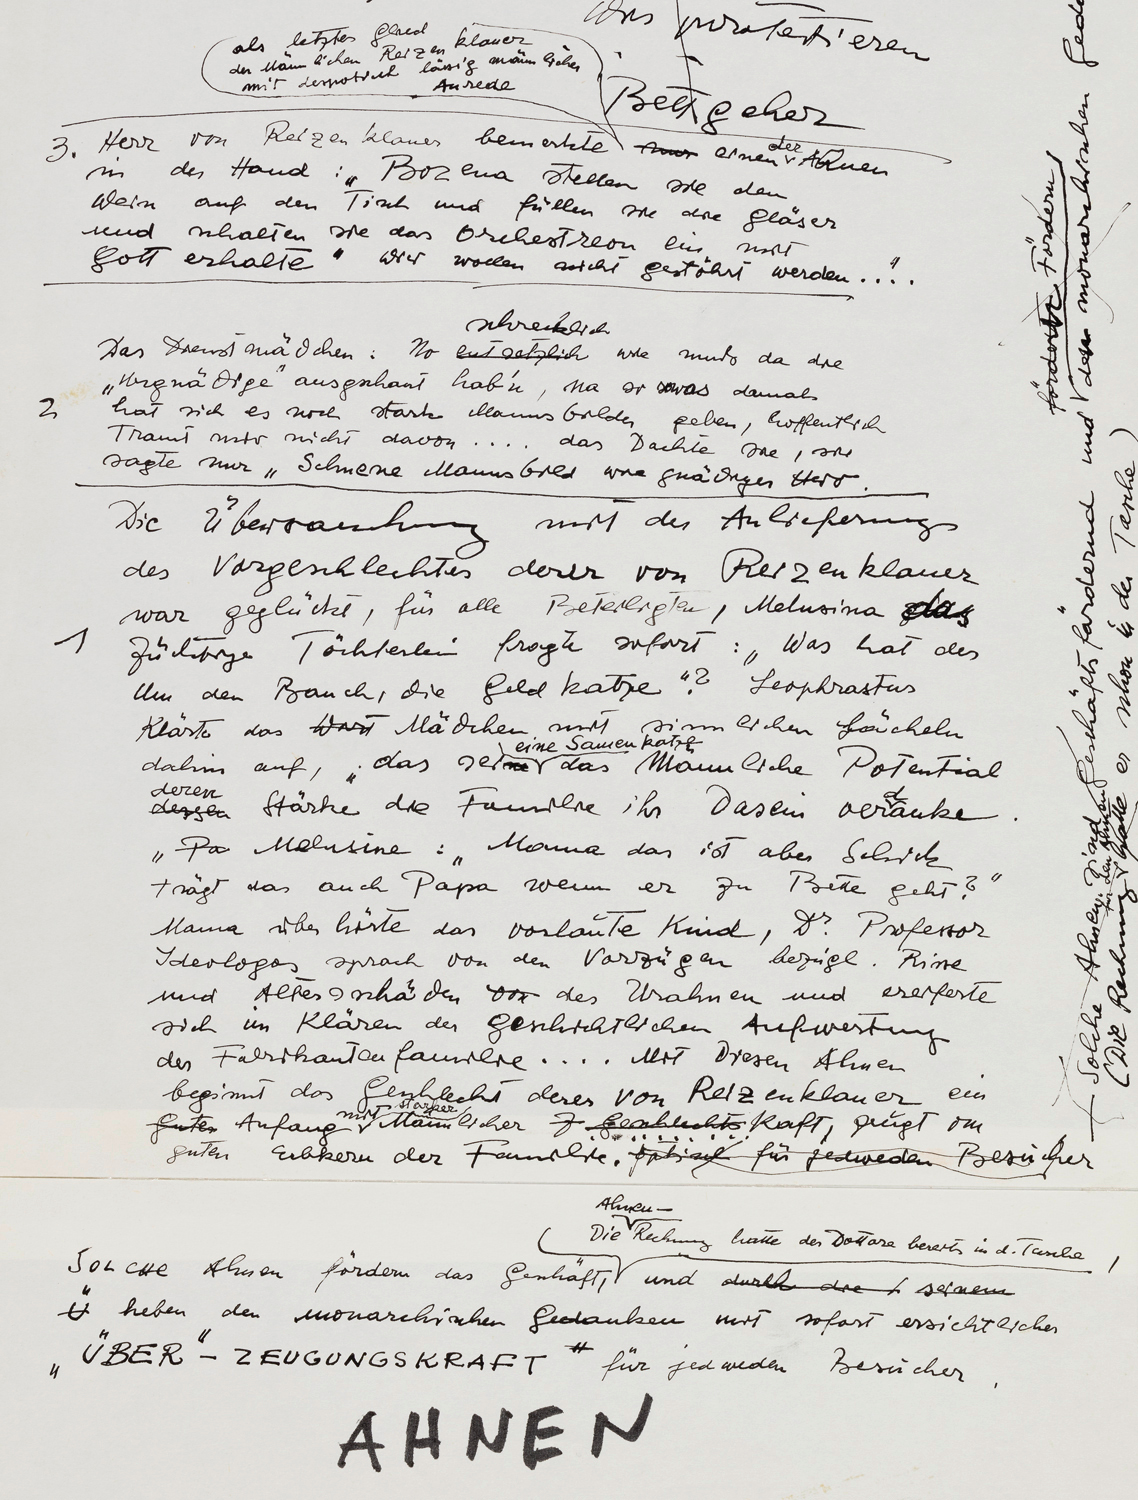 das protestieren
Bettgeher
als letztes Glied
der Männlichen Reizenklauer
mit despotisch lässig männlicher
Anrede
3. Herr von Reizenklauer bemerkte nur einen der Ahnen
in der Hand : „ Bozena stellen sie den
Wein auf den Tisch und füllen sie die Gläser
und schalten sie das Orchestreon ein mit
Gott erhalte “ wir wollen nicht gestöhrt werden . . . .“
schrecklich
Das Dienstmädchen : No entsetzlich wie muß da die
„Urgnädige“ ausgschaut hab'n, na so was damals
2 hat sich es noch starke Mannsbilder geben, hoffentlich
Tramt mir nicht davon . . . . das Dachte sie, sie
sagte nur „ Schoene Mannsbild wie gnädiger Herr .
Die Überraschung mit der Anlieferung
des Vorgeschlechtes derer von Reizenklauer
war geglückt, für alle Beteiligten, Melusina das
1 Züchtige Töchterlein fragte sofort : „ Was hat der
Um den Bauch, die Geldkatze “? Leophrastus
Klärte das Wort Mädchen mit sinnlichen Lächeln
eine Samenkatze
dahin auf, „ das seine das Männliche Potential
deren
dessen Stärke die Familie ihr Dasein verdanke .
„ Pa Melusine : „ Mama das ist aber Schick
trägt das auch Papa wenn er zu Bette geht? “
Mama überhörte das vorlaute Kind, Dr. Professor
Ideologos sprach von den Vorzügen bezügl. Risse
und Altersschäden von des Urahnen und ereiferte
sich im Klären der geschichtlichen Aufwertung
der Fabrikantenfamilie . . . . Mit Diesen Ahnen
beginnt das Geschlecht derer von Reizenklauer ein
mit starker
guter Anfang Männlicher Geschlechtskraft, zeugt im
guten Erbkern der Familie. für jedweden Besucher
Ahnen—
Die Rechnung hatte der Dottore bereits in d. Tasche
Solche Ahnen fördern das Geschäft, und durch die seinem
Ü heben den monarchischen Gedanken mit sofort ersichtlicher
„ ÜBER “ – ZEUGUNGSKRAFT “ für jedweden Besucher .
AHNEN
Solche Ahnen sind geschäftsfördernd und dem monarchischen
förderte Fördern
für den Ahnen
(Die Rechnung hatte er schon in der Tasche)